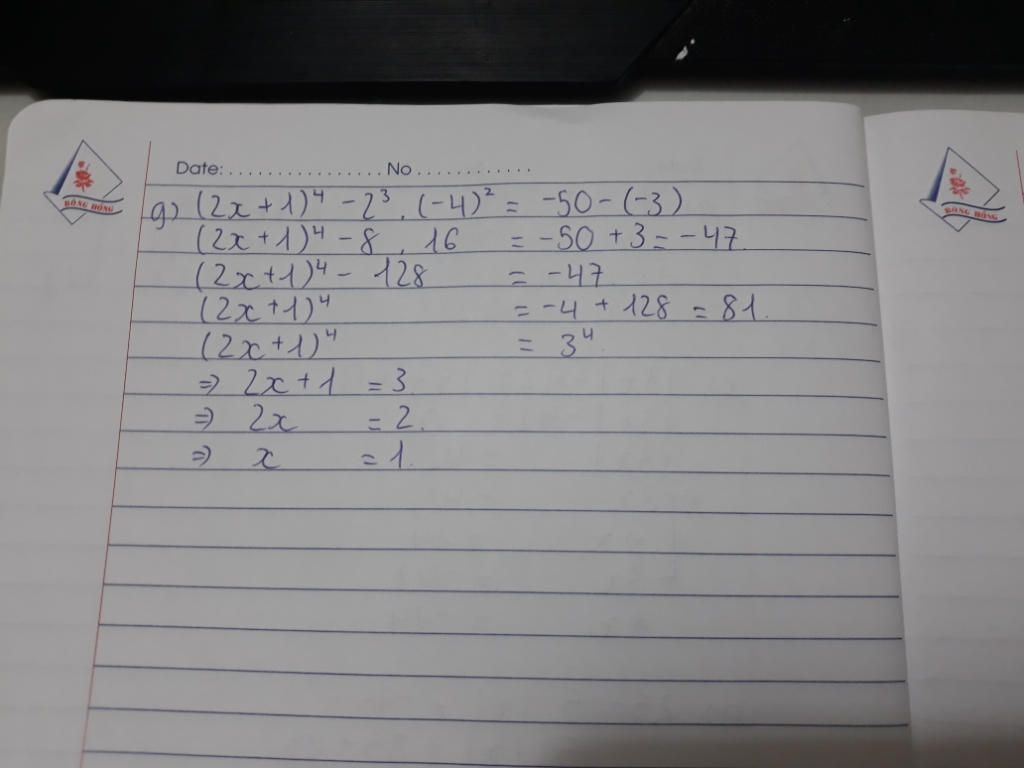 Date: ................ No ............
g) (2x + 1)⁴ - 2³ . (-4)² = -50 - (-3)
(2x + 1)⁴ - 8 . 16 = -50 + 3 = -47.
(2x + 1)⁴ - 128 = -47
(2x + 1)⁴ = -4 + 128 = 81.
(2x + 1)⁴ = 3⁴.
=> 2x + 1 = 3.
=> 2x = 2.
=> x = 1.
BÔNG HỒNG
BÔNG HỒNG